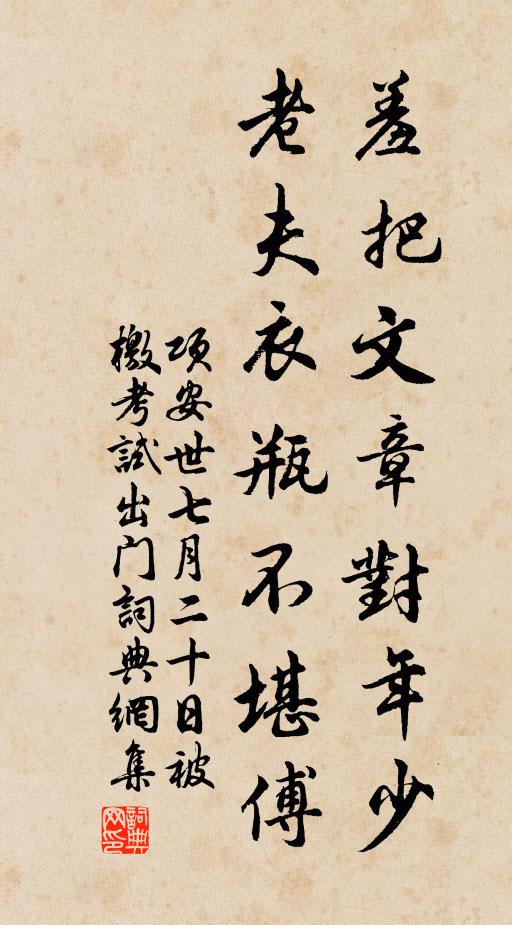 羞把文章對年少
老夫衣瓶不堪傅
項安世七月二十日被
檄考試出門詞典網集
詞典网印